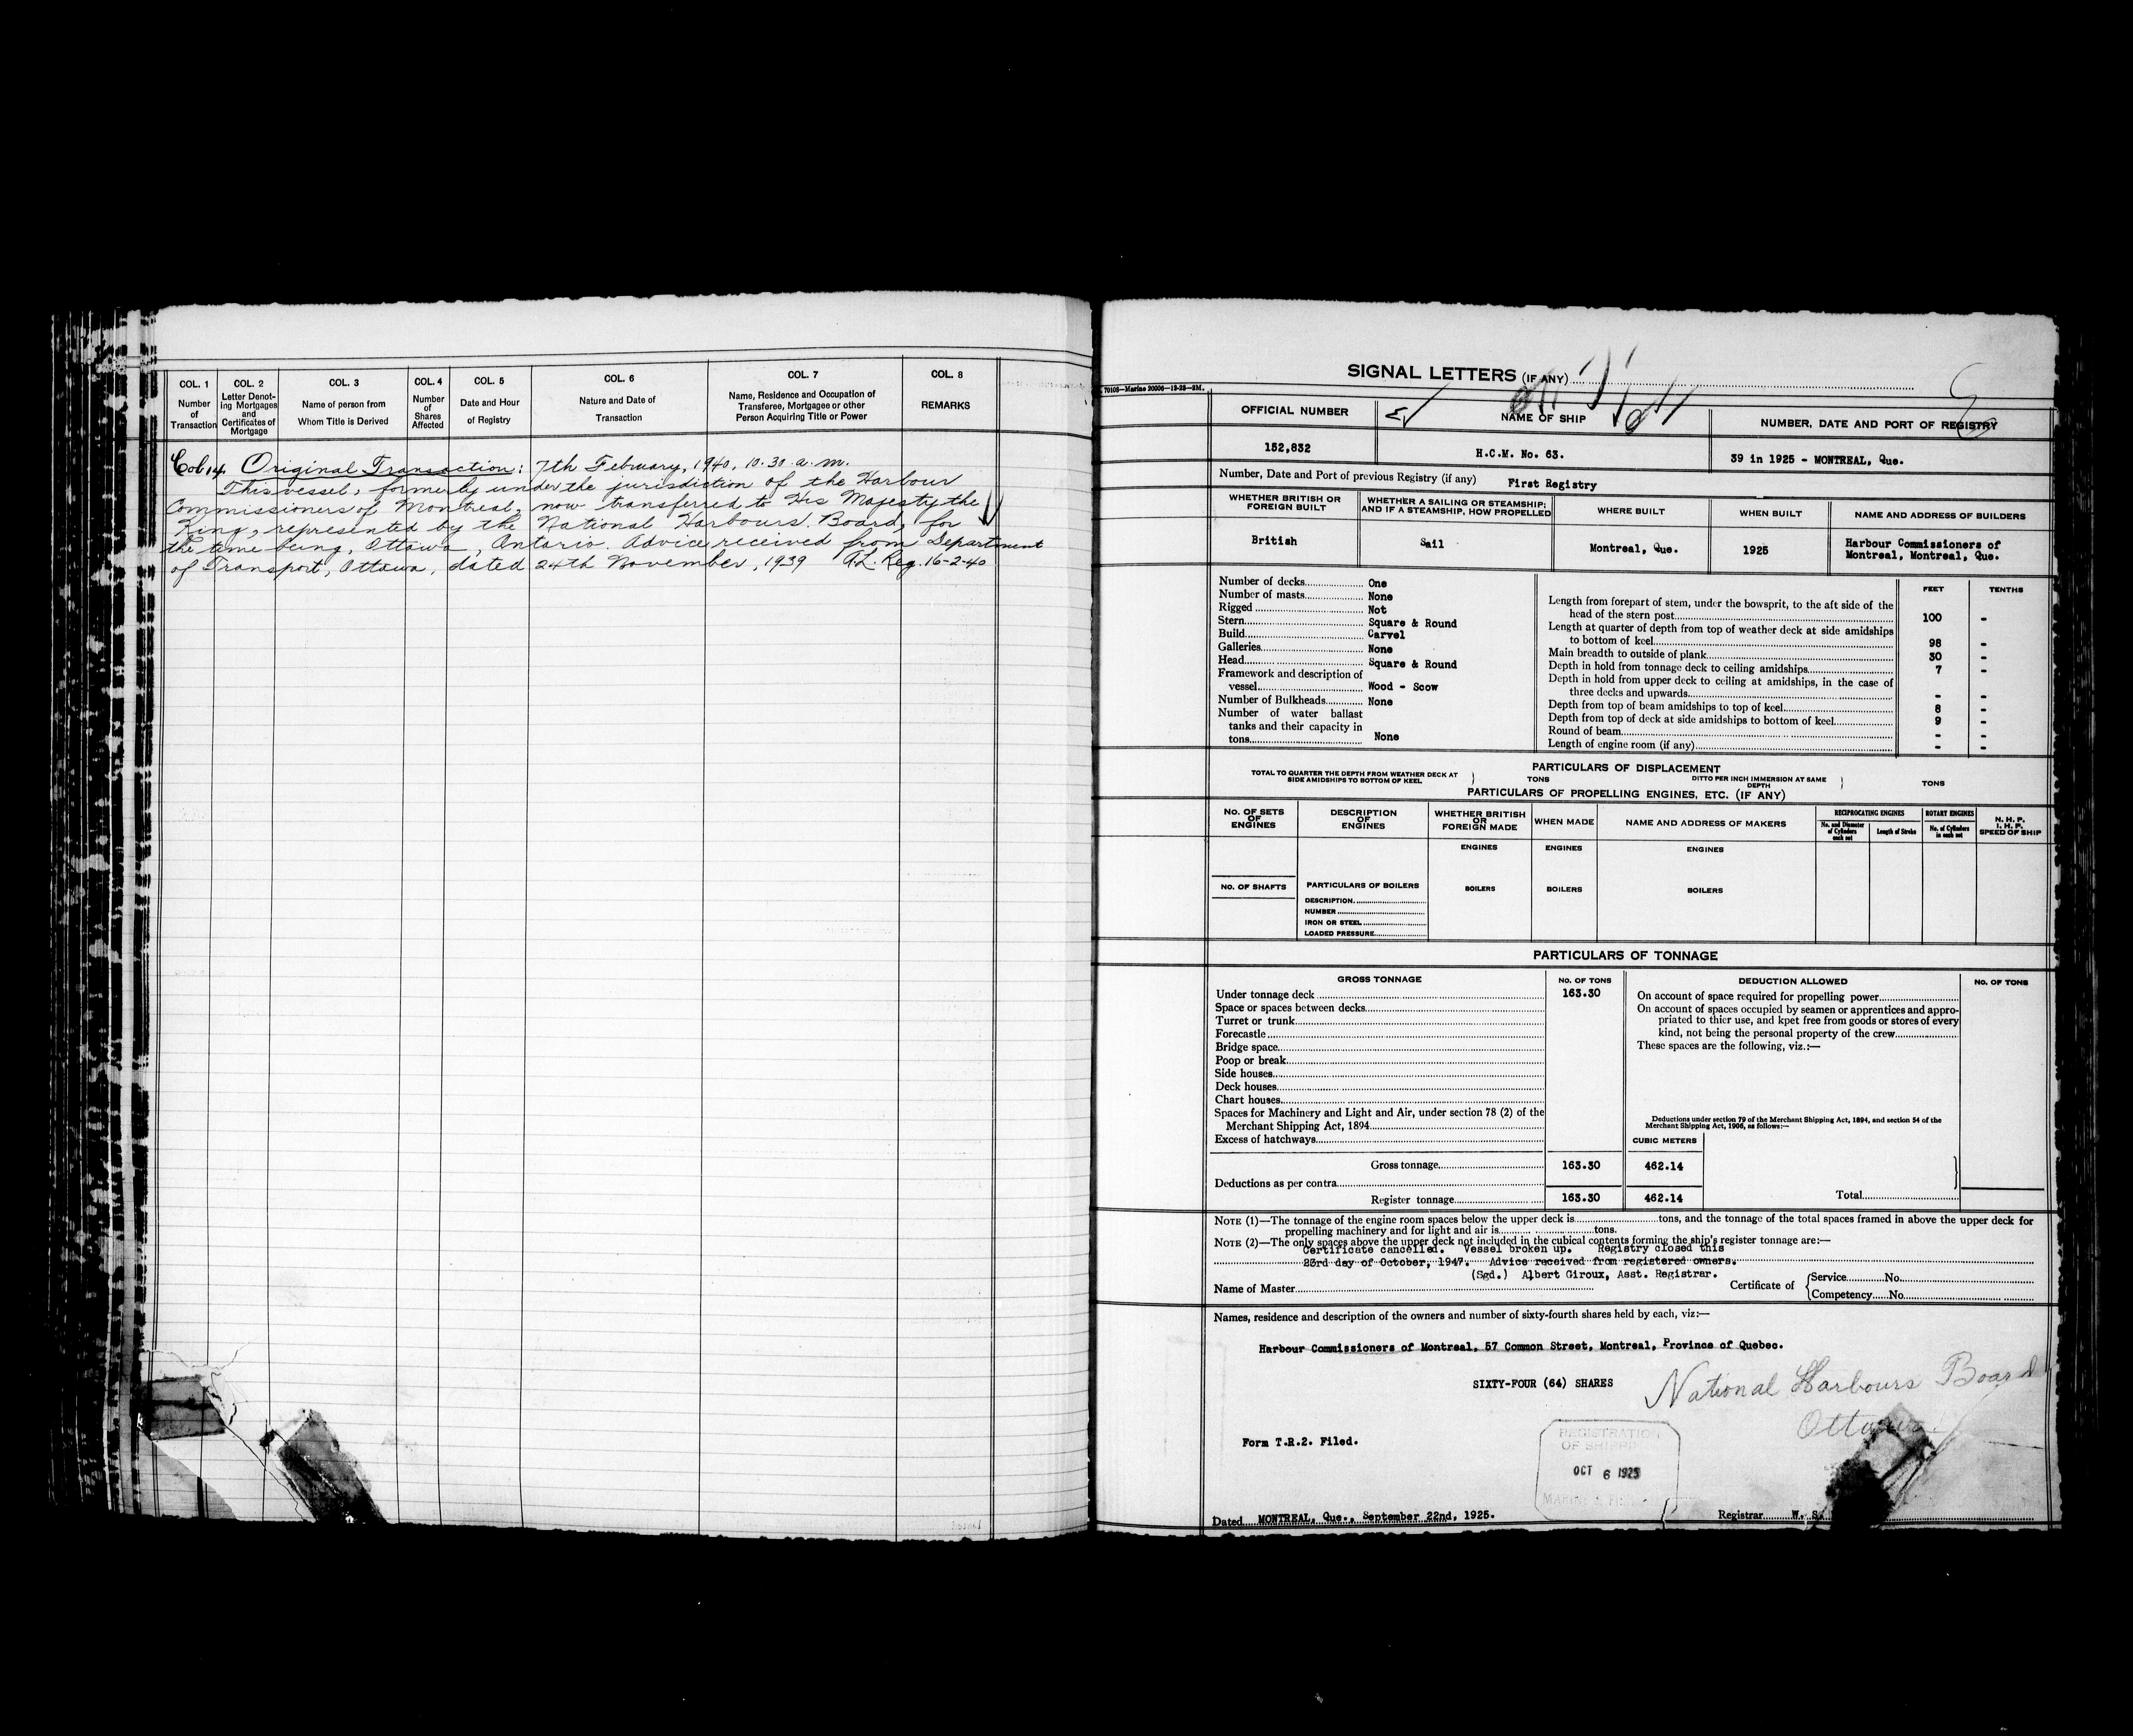 COL. 1 COL. 2 COL. 3 COL. 4 COL. 5 COL. 6 COL. 7 COL. 8
Number of Transaction
Letter Denoting Mortgages and Certificates of Mortgage
Name of person from Whom Title is Derived
Number of Shares Affected
Date and Hour of Registry
Nature and Date of Transaction
Name, Residence and Occupation of Transferee, Mortgagee or other Person Acquiring Title or Power
REMARKS
Col 14. Original Transaction: 7th February, 1940, 10.30 a.m.
This vessel, formerly under the jurisdiction of the Harbour
Commissioners of Montreal, now transferred to His Majesty the
King, represented by the National Harbours Board, for
the time being, Ottawa, Ontario. Advice received from Department
of Transport, Ottawa, dated 24th November, 1939 A.L. Reg. 16-2-40
SIGNAL LETTERS (IF ANY)
70105—Marine 20006—12-23—2M.
OFFICIAL NUMBER NAME OF SHIP NUMBER, DATE AND PORT OF REGISTRY
152,832 H.C.M. No. 63. 39 in 1925 - MONTREAL, Que.
Number, Date and Port of previous Registry (if any) First Registry
WHETHER BRITISH OR FOREIGN BUILT
WHETHER A SAILING OR STEAMSHIP; AND IF A STEAMSHIP, HOW PROPELLED
WHERE BUILT WHEN BUILT NAME AND ADDRESS OF BUILDERS
British Sail Montreal, Que. 1925 Harbour Commissioners of
Montreal, Montreal, Que.
FEET TENTHS
Number of decks One
Number of masts None
Rigged Not
Stern Square & Round
Build Carvel
Galleries None
Head Square & Round
Framework and description of
vessel Wood - Scow
Number of Bulkheads None
Number of water ballast
tanks and their capacity in
tons None
Length from forepart of stem, under the bowsprit, to the aft side of the
head of the stern post 100 -
Length at quarter of depth from top of weather deck at side amidships
to bottom of keel 98 -
Main breadth to outside of plank 30 -
Depth in hold from tonnage deck to ceiling amidships 7 -
Depth in hold from upper deck to ceiling at amidships, in the case of
three decks and upwards - -
Depth from top of beam amidships to top of keel 8 -
Depth from top of deck at side amidships to bottom of keel 9 -
Round of beam - -
Length of engine room (if any) - -
PARTICULARS OF DISPLACEMENT
TOTAL TO QUARTER THE DEPTH FROM WEATHER DECK AT SIDE AMIDSHIPS TO BOTTOM OF KEEL } TONS
DITTO PER INCH IMMERSION AT SAME DEPTH } TONS
PARTICULARS OF PROPELLING ENGINES, ETC. (IF ANY)
NO. OF SETS OF ENGINES
DESCRIPTION OF ENGINES
WHETHER BRITISH OR FOREIGN MADE
WHEN MADE
NAME AND ADDRESS OF MAKERS
RECIPROCATING ENGINES
No. and Diameter of Cylinders each set
Length of Stroke
ROTARY ENGINES
No. of Cylinders in each set
N. H. P.
I. H. P.
SPEED OF SHIP
ENGINES ENGINES ENGINES
NO. OF SHAFTS PARTICULARS OF BOILERS BOILERS BOILERS BOILERS
DESCRIPTION
NUMBER
IRON OR STEEL
LOADED PRESSURE
PARTICULARS OF TONNAGE
GROSS TONNAGE NO. OF TONS DEDUCTION ALLOWED NO. OF TONS
Under tonnage deck 163.30
Space or spaces between decks
Turret or trunk
Forecastle
Bridge space
Poop or break
Side houses
Deck houses
Chart houses
Spaces for Machinery and Light and Air, under section 78 (2) of the
Merchant Shipping Act, 1894
Excess of hatchways
Gross tonnage 163.30 462.14
Deductions as per contra
Register tonnage 163.30 462.14
On account of space required for propelling power
On account of spaces occupied by seamen or apprentices and appro-
priated to thier use, and kpet free from goods or stores of every
kind, not being the personal property of the crew
These spaces are the following, viz.:—
Deductions under section 79 of the Merchant Shipping Act, 1894, and section 54 of the
Merchant Shipping Act, 1906, as follows:—
CUBIC METERS
Total
NOTE (1)—The tonnage of the engine room spaces below the upper deck is tons, and the tonnage of the total spaces framed in above the upper deck for
propelling machinery and for light and air is tons.
NOTE (2)—The only spaces above the upper deck not included in the cubical contents forming the ship's register tonnage are:—
Certificate cancelled. Vessel broken up. Registry closed this
23rd day of October, 1947. Advice received from registered owners.
(Sgd.) Albert Giroux, Asst. Registrar.
Name of Master Certificate of { Service No.
Competency No.
Names, residence and description of the owners and number of sixty-fourth shares held by each, viz:—
Harbour Commissioners of Montreal, 57 Common Street, Montreal, Province of Quebec.
SIXTY-FOUR (64) SHARES
National Harbours Board
Ottawa.
Form T.R.2. Filed.
REGISTRATION
OF SHIPPING
OCT 6 1925
Dated MONTREAL, Que., September 22nd, 1925.
Registrar W. S.